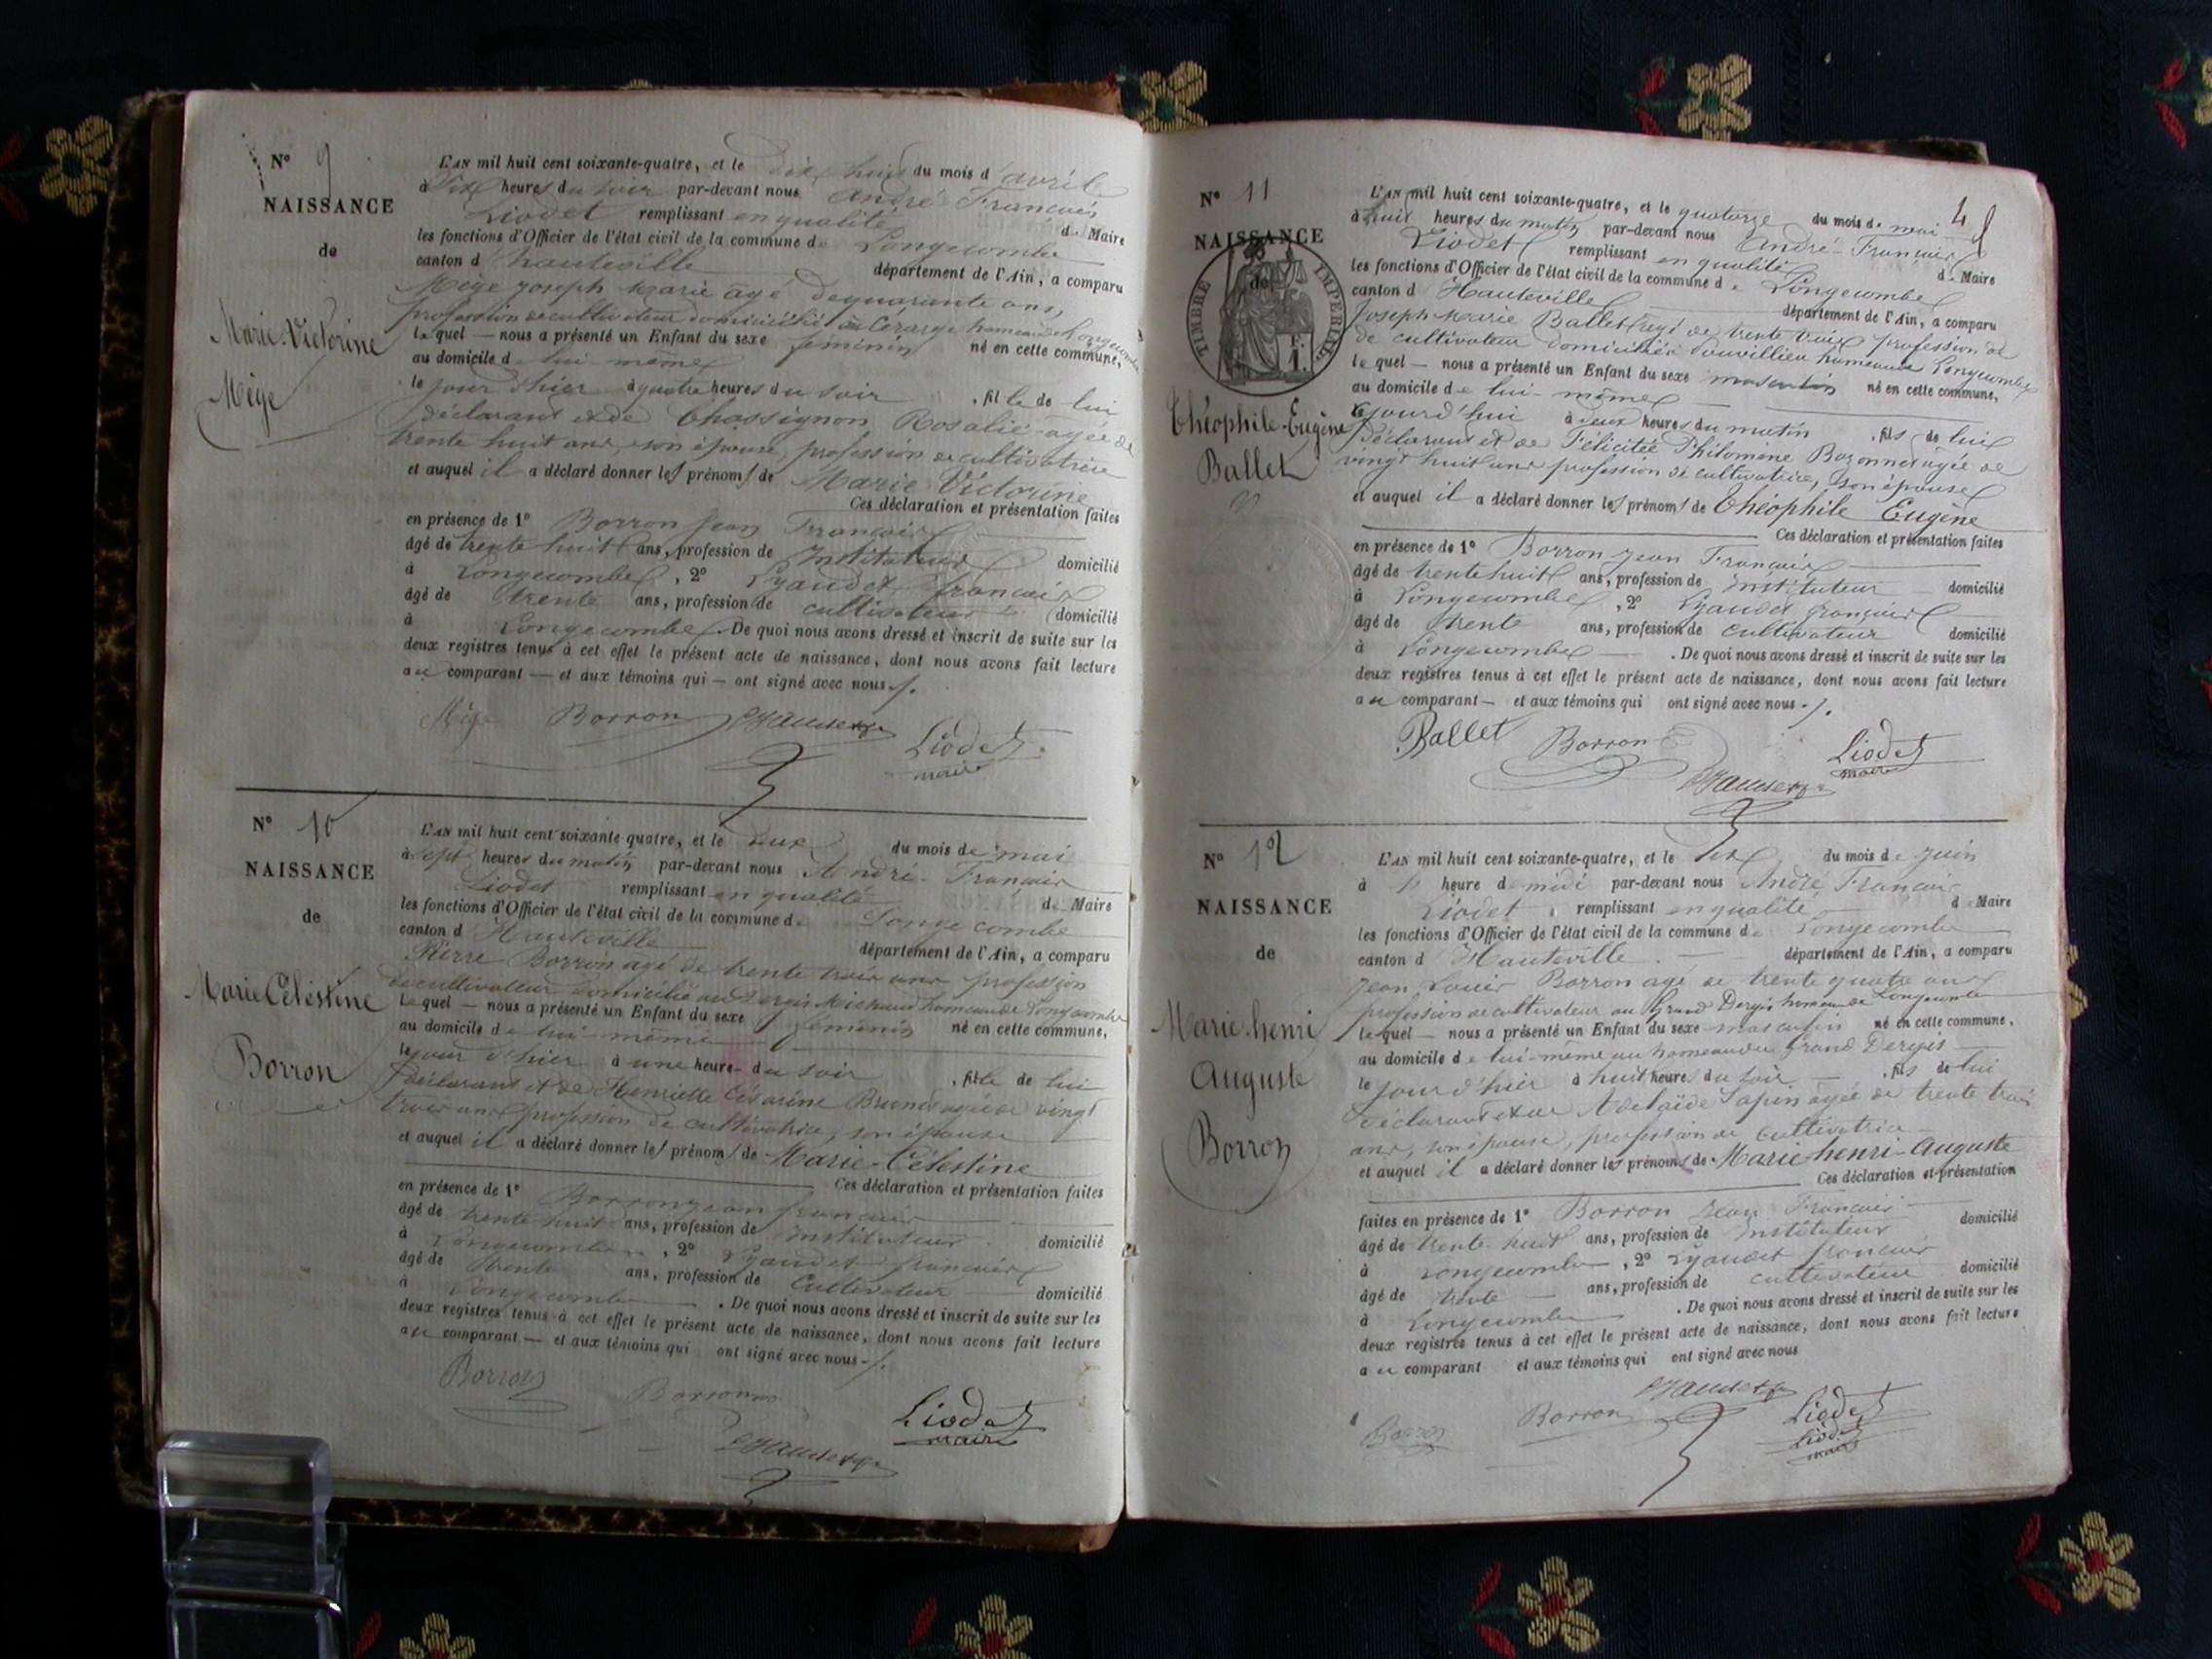 N° 9
NAISSANCE
de
Marie-Victorine
Mège
L'AN mil huit cent soixante-quatre, et le dix huit du mois d avril
à six heures du soir par-devant nous André François
Liodet remplissant en qualité de Maire
les fonctions d'Officier de l'état civil de la commune de Longecombe
canton d'hauteville département de l'Ain, a comparu
Mège joseph Marie agé de quarante ans,
profession de cultivateur domicilié au hameau de Longecombe
lequel — nous a présenté un Enfant du sexe feminin né en cette commune,
au domicile de lui-même
le jour d'hier à quatre heures du soir , fille de lui
déclarant et de Chassignon Rosalie agée de
trente huit ans, son épouse, profession de cultivatrice
et auquel il a déclaré donner les prénoms de Marie Victorine
Ces déclaration et présentation faites
en présence de 1° Borron Jean François
âgé de trente huit ans, profession de Instituteur domicilié
à Longecombe , 2° Lyaudet françois
âgé de trente ans, profession de cultivateur domicilié
à Longecombe . De quoi nous avons dressé et inscrit de suite sur les
deux registres tenus à cet effet le présent acte de naissance, dont nous avons fait lecture
au comparant — et aux témoins qui — ont signé avec nous ./.
Mège Borron Lyaudet Liodet
maire
N° 10
NAISSANCE
de
Marie Célestine
Borron
L'AN mil huit cent soixante-quatre, et le deux du mois de mai
à sept heures du matin par-devant nous André François
Liodet remplissant en qualité de Maire
les fonctions d'Officier de l'état civil de la commune de Longecombe
canton d'Hauteville département de l'Ain, a comparu
Pierre Borron agé de trente trois ans profession
de cultivateur domicilié au Dergis Michaud hameau de Longecombe
Lequel — nous a présenté un Enfant du sexe féminin né en cette commune,
au domicile de lui-même
le jour d'hier à une heure du soir , fille de lui
déclarant et de Henriette Césarine Brunet agée de vingt
trois ans profession de cultivatrice, son épouse
et auquel il a déclaré donner les prénoms de Marie-Célestine
Ces déclaration et présentation faites
en présence de 1° Borron jean françois
âgé de trente huit ans, profession de Instituteur domicilié
à Longecombe , 2° Lyaudet françois
âgé de trente ans, profession de Cultivateur domicilié
à Longecombe . De quoi nous avons dressé et inscrit de suite sur les
deux registres tenus à cet effet le présent acte de naissance, dont nous avons fait lecture
au comparant — et aux témoins qui ont signé avec nous ./.
Borron Borron Liodet
maire
Lyaudet
4
N° 11
NAISSANCE
de
TIMBRE IMPERIAL
1 F.
Théophile-Eugène
Ballet
L'AN mil huit cent soixante-quatre, et le quatorze du mois de mai
à huit heures du matin par-devant nous André-François
Liodet remplissant en qualité de Maire
les fonctions d'Officier de l'état civil de la commune de Longecombe
canton d'Hauteville département de l'Ain, a comparu
Joseph Marie Ballet agé de trente trois profession de
de cultivateur domicilié hameau de Longecombe
lequel — nous a présenté un Enfant du sexe masculin né en cette commune,
au domicile de lui-même
ce jourd'hui à deux heures du matin , fils de lui
déclarant et de Félicitée Philomene Bozonnet agée de
vingt huit ans profession de cultivatrice, son épouse
et auquel il a déclaré donner les prénoms de Théophile Eugène
Ces déclaration et présentation faites
en présence de 1° Borron jean François
âgé de trente huit ans, profession de Instituteur domicilié
à Longecombe , 2° Lyaudet françois
âgé de trente ans, profession de cultivateur domicilié
à Longecombe — . De quoi nous avons dressé et inscrit de suite sur les
deux registres tenus à cet effet le présent acte de naissance, dont nous avons fait lecture
au comparant — et aux témoins qui ont signé avec nous ./.
Ballet Borron Liodet
maire
Lyaudet
N° 12
NAISSANCE
de
Marie-henri
Auguste
Borron
L'AN mil huit cent soixante-quatre, et le six du mois de juin
à heure de midi par-devant nous André François
Liodet remplissant en qualité de Maire
les fonctions d'Officier de l'état civil de la commune de Longecombe
canton d'Hauteville département de l'Ain, a comparu
jean Louis Borron agé de trente quatre ans
profession de cultivateur au Grand Dergis hameau de Longecombe
lequel — nous a présenté un Enfant du sexe masculin né en cette commune,
au domicile de lui-même au hameau du Grand Dergis
le jour d'hier à huit heures du soir — , fils de lui
déclarant et de Adelaïde Sapin agée de trente trois
ans, son épouse, profession de cultivatrice
et auquel il a déclaré donner les prénoms de Marie-henri-Auguste
Ces déclaration et présentation
faites en présence de 1° Borron Jean François
âgé de trente huit ans, profession de Instituteur domicilié
à Longecombe , 2° Lyaudet françois
âgé de trente — ans, profession de cultivateur domicilié
à Longecombe . De quoi nous avons dressé et inscrit de suite sur les
deux registres tenus à cet effet le présent acte de naissance, dont nous avons fait lecture
au comparant et aux témoins qui ont signé avec nous
Lyaudet
Borron Borron Liodet
Liodet
maire